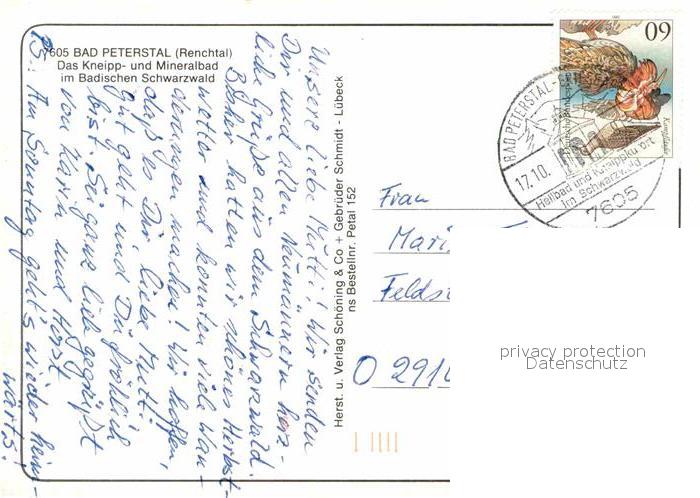 7605 BAD PETERSTAL (Renchtal)
Das Kneipp- und Mineralbad
im Badischen Schwarzwald
Unsere liebe Mutti! Wir senden
Dir und allen Neumännern herz-
liche Grüße aus dem Schwarzwald.
Bisher hatten wir schönes Herbst-
wetter und konnten viele Wan-
derungen machen! Wir hoffen,
daß es Dir, liebe Mutti
gut geht und Du fröhlich
bist. Sei ganz lieb gegrüßt
von Karin und Horst
PS: Am Sonntag geht's wieder heim-
wärts!
Herst. u. Verlag Schöning & Co + Gebrüder Schmidt - Lübeck
ns Bestellnr. Petal 152
60
Kampfläufer
BAD PETERSTAL-
17.10.
Heilbad und Kneippkurort
im Schwarzwald
7605
Frau
Mari
Felds
O 291
privacy protection
Datenschutz